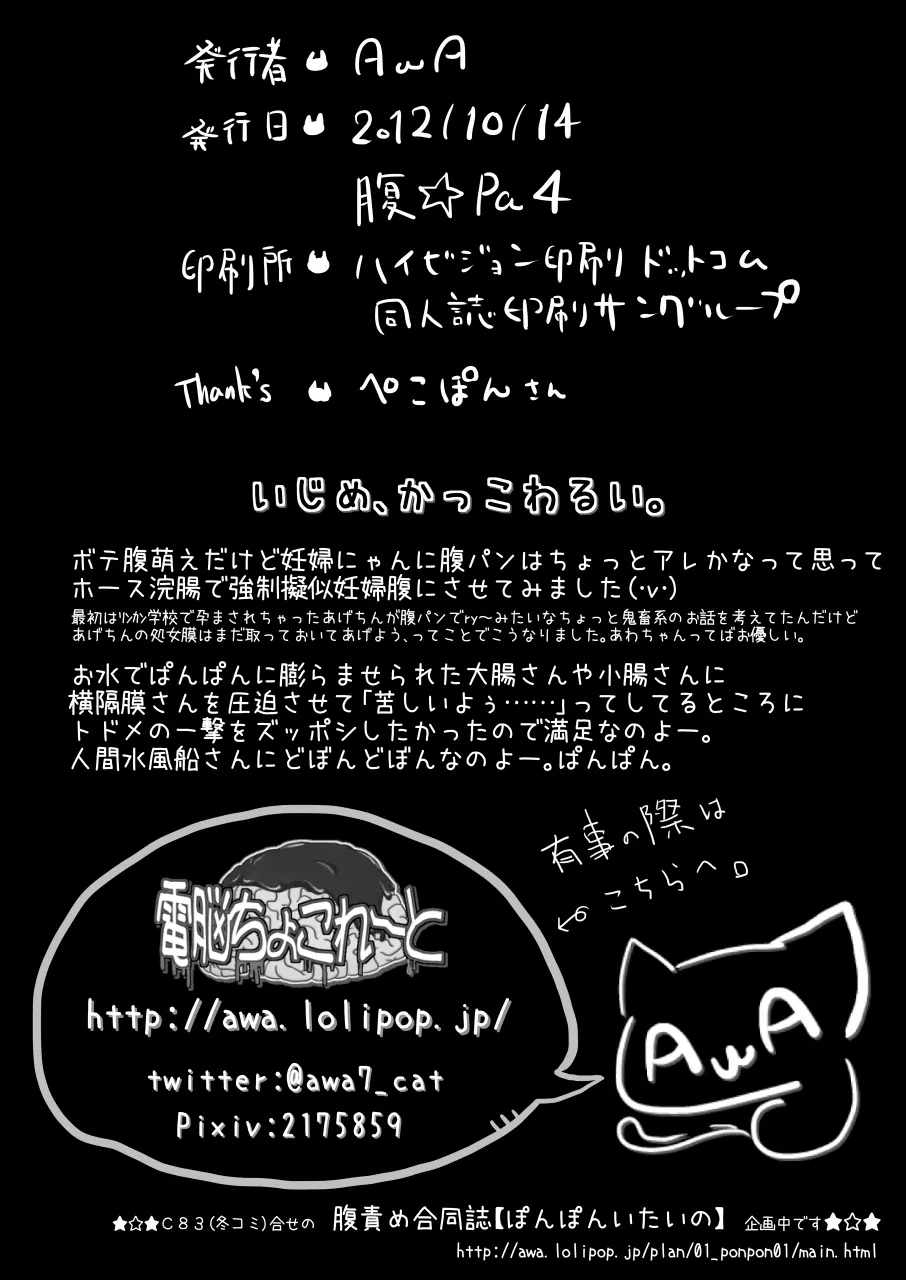 発行者 AwA
発行日 2012/10/14
腹☆Pa4
印刷所 ハイビジョン印刷ドットコム
同人誌印刷サングループ
Thank's ぺこぽんさん
いじめ、かっこわるい。
ボテ腹萌えだけど妊婦にゃんに腹パンはちょっとアレかなって思って
ホース浣腸で強制擬似妊婦腹にさせてみました(・v・)
最初はﾘﾝｶﾝ学校で孕まされちゃったあげちんが腹パンでry～みたいなちょっと鬼畜系のお話を考えてたんだけど
あげちんの処女膜はまだ取っておいてあげよう、ってことでこうなりました。あわちゃんってばお優しい。
お水でぱんぱんに膨らませられた大腸さんや小腸さんに
横隔膜さんを圧迫させて「苦しいよぅ……」ってしてるところに
トドメの一撃をズッポシしたかったので満足なのよー。
人間水風船さんにどぼんどぼんなのよー。ぱんぱん。
有事の際は
こちらへ。
電脳ちょこれーと
http://awa.lolipop.jp/
twitter:@awa7_cat
Pixiv:2175859
AwA
★☆★C83(冬コミ)合せの 腹責め合同誌【ぽんぽんいたいの】 企画中です★☆★
http://awa.lolipop.jp/plan/01_ponpon01/main.html